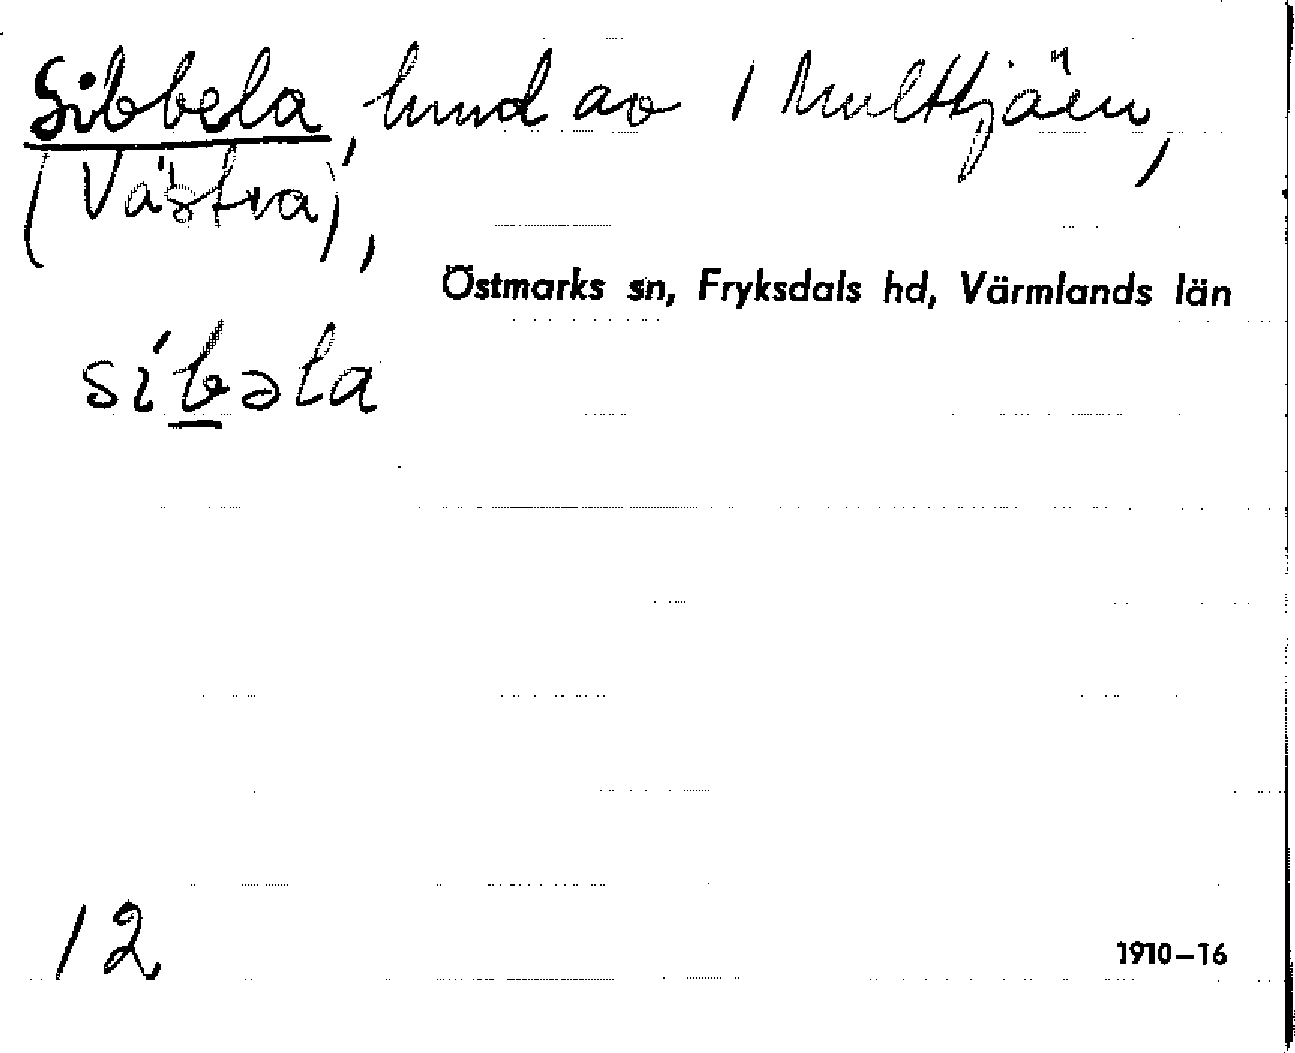 Sibbela, hmd av 1 Multtjärn,
(Västra),
Östmarks sn, Fryksdals hd, Värmlands län
síbəla
12
1910–16